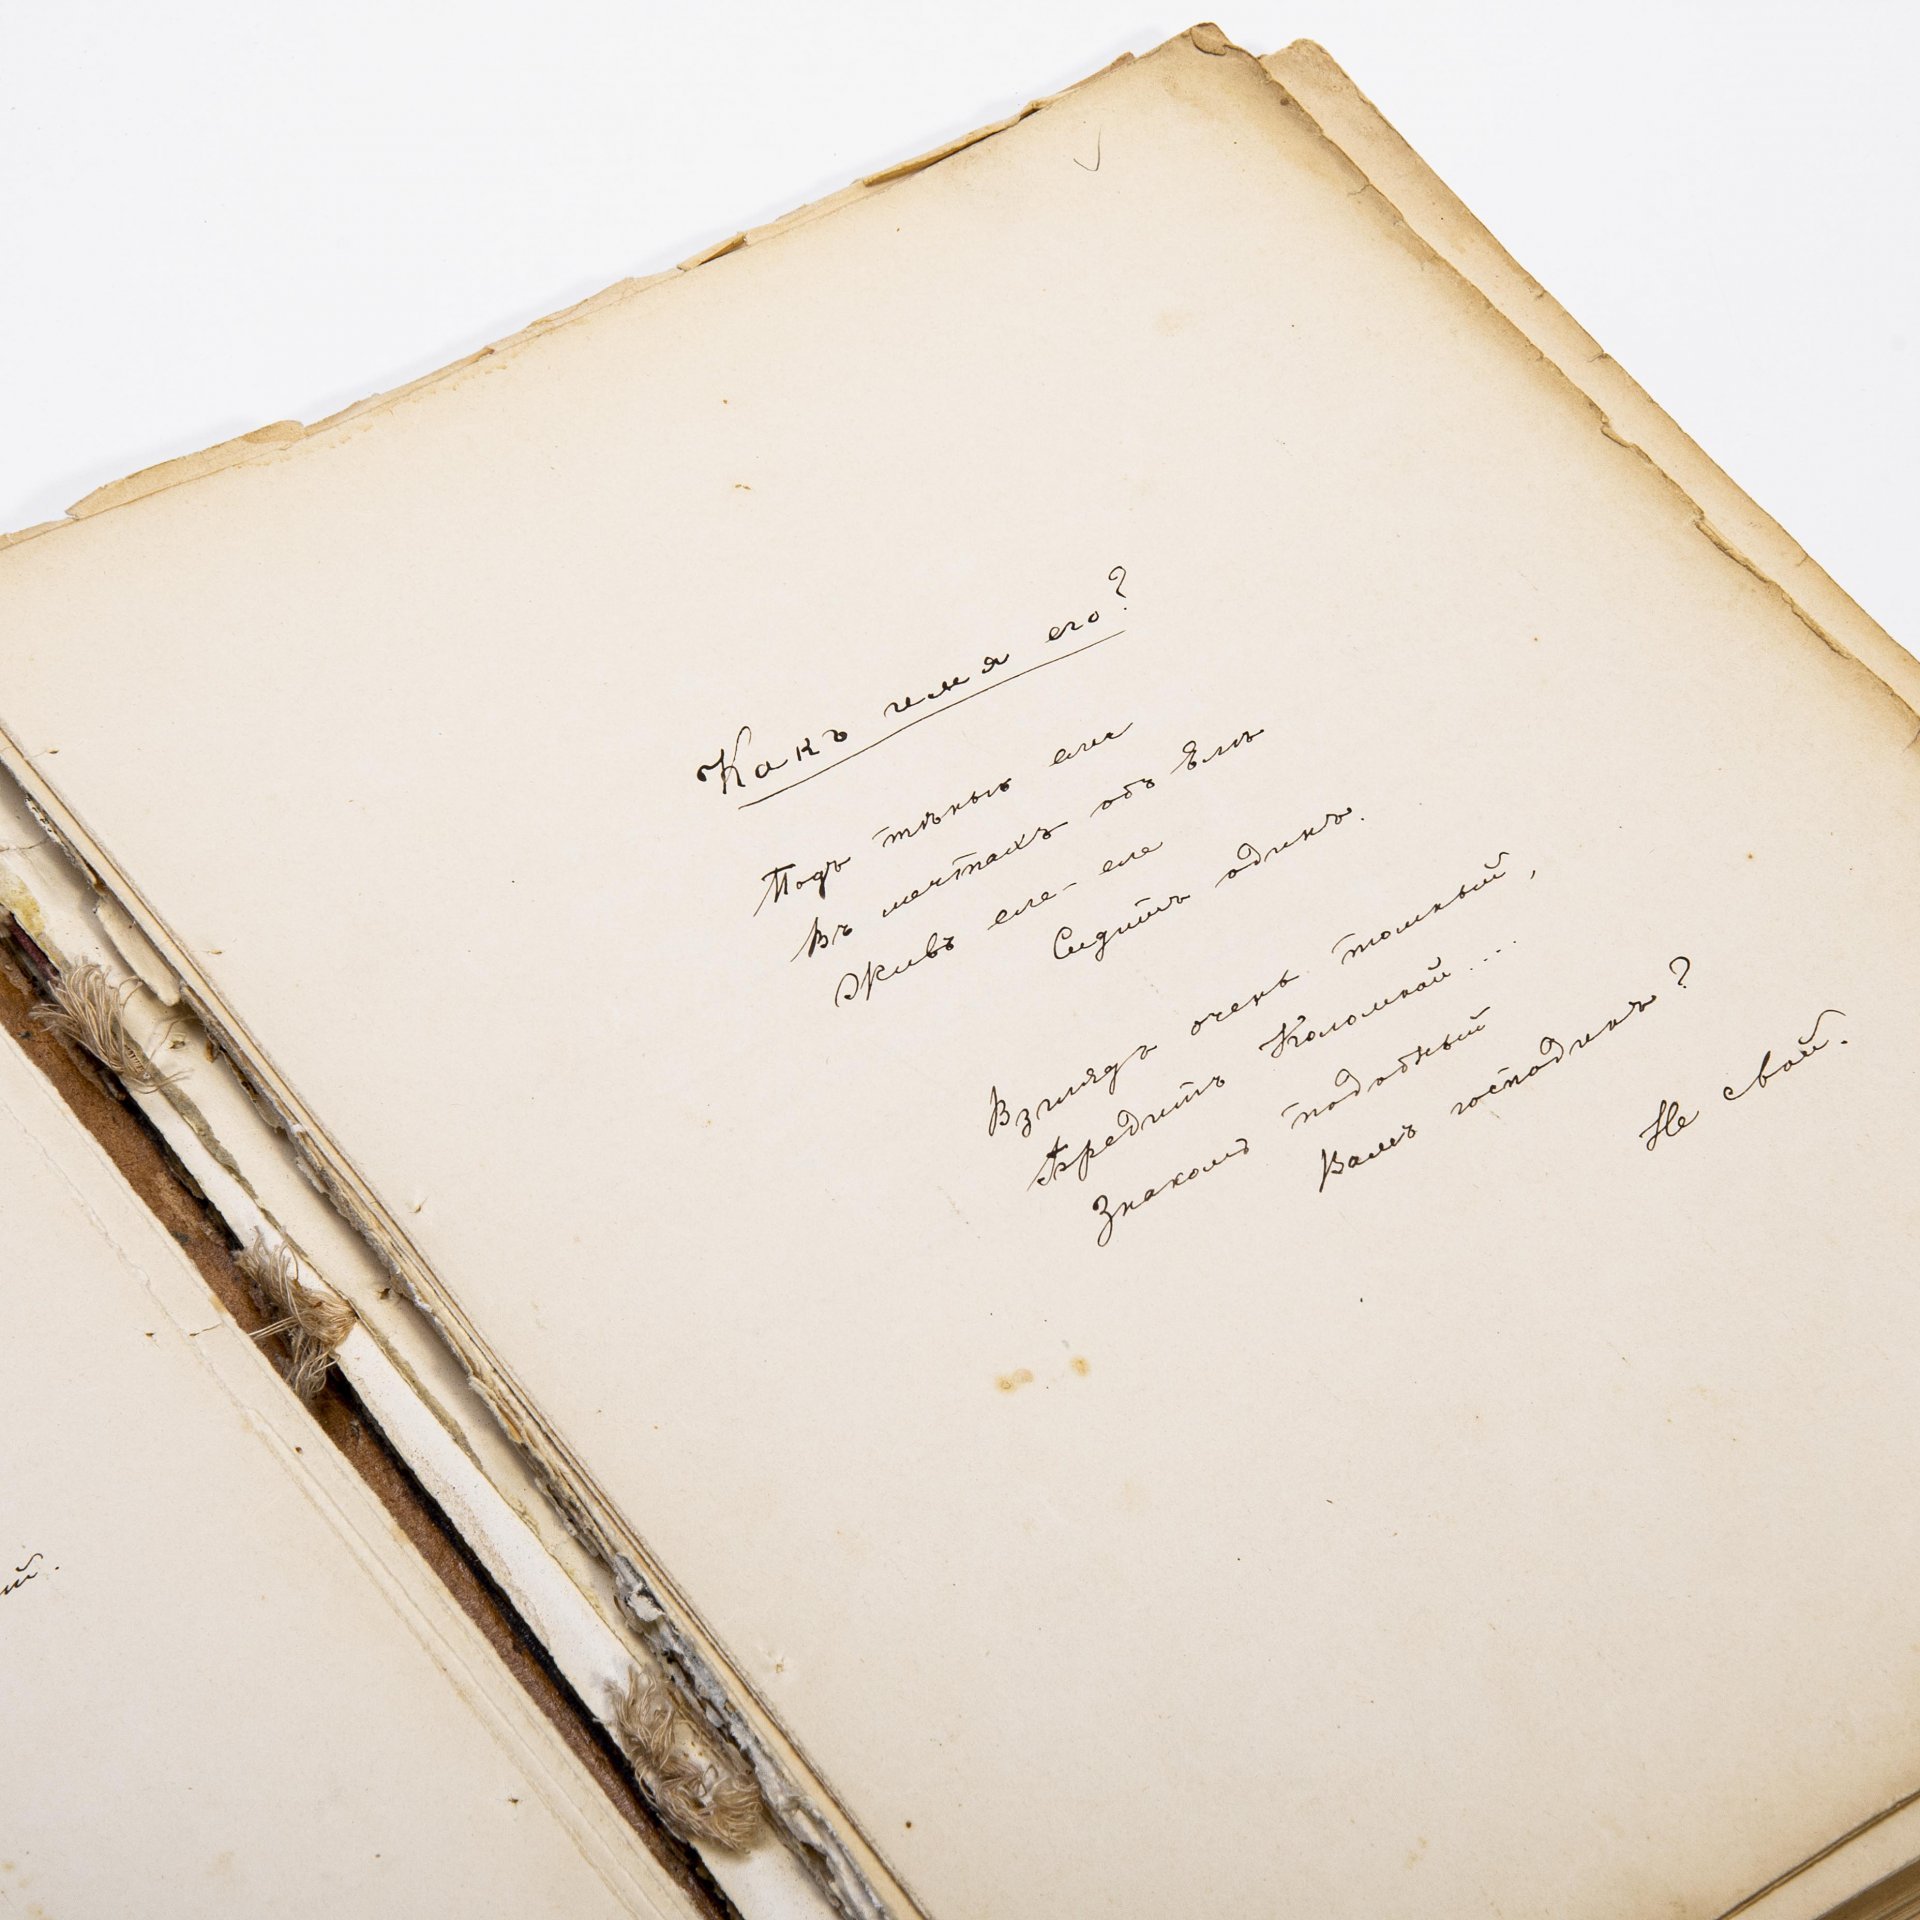 Какъ имя его?
Подъ тѣнью ели
Въ мечтахъ объ Ѣлѣ
Живъ еле-еле
Сидитъ одинъ.
Взглядъ очень томный,
Бредитъ Коломной...
Знакомъ подобный
Вамъ господинъ?
Не свой.
ий.